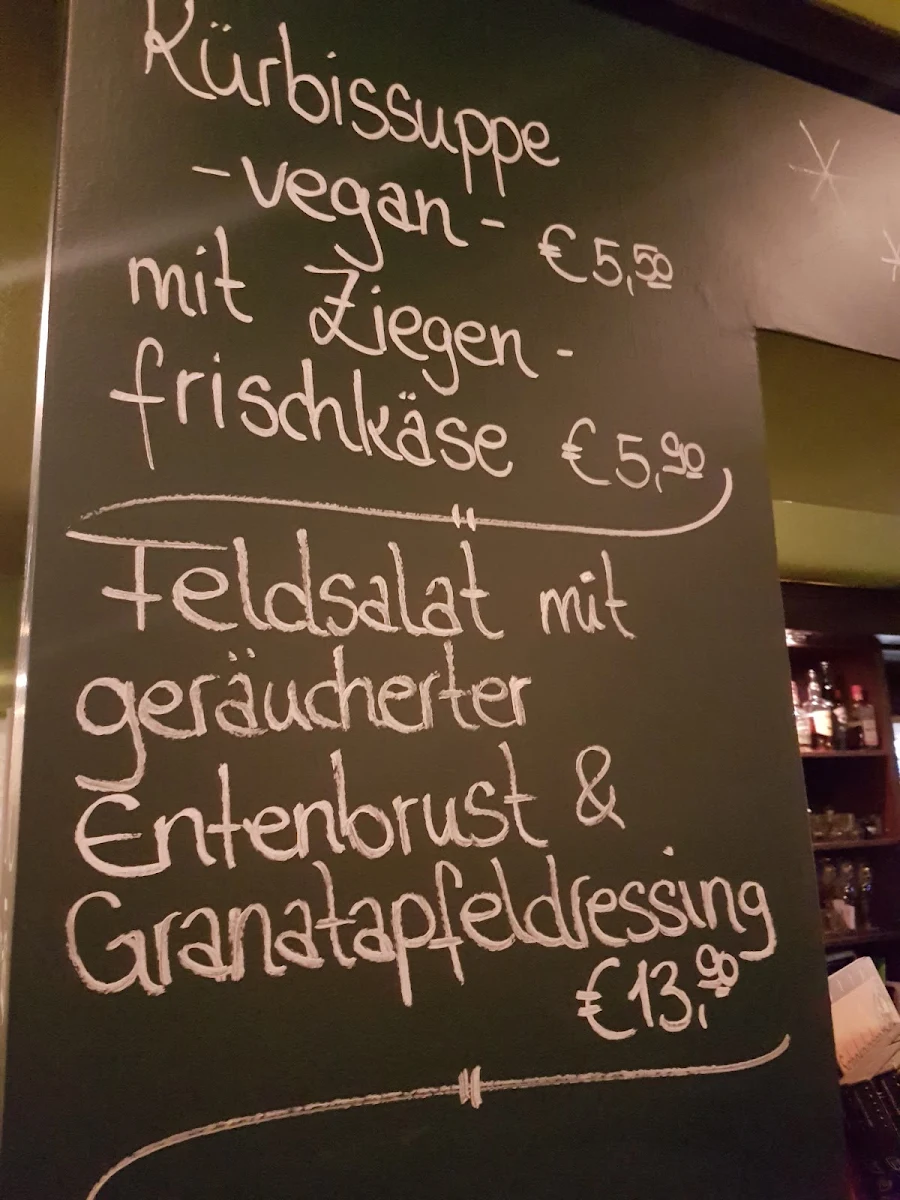 Kürbissuppe
-vegan- € 5,50
mit Ziegen-
frischkäse € 5,90
Feldsalat mit
geräucherter
Entenbrust &
Granatapfeldressing
€ 13,90